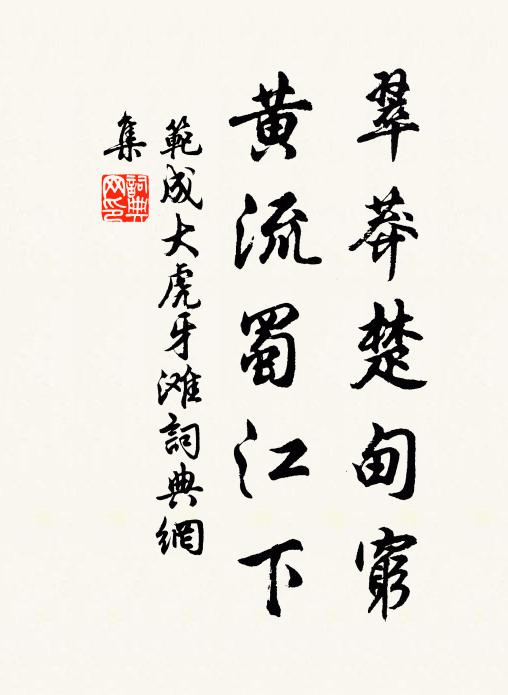 翠莽楚甸窮
黃流蜀江下
範成大虎牙滩詞典網
集
詞典
网印